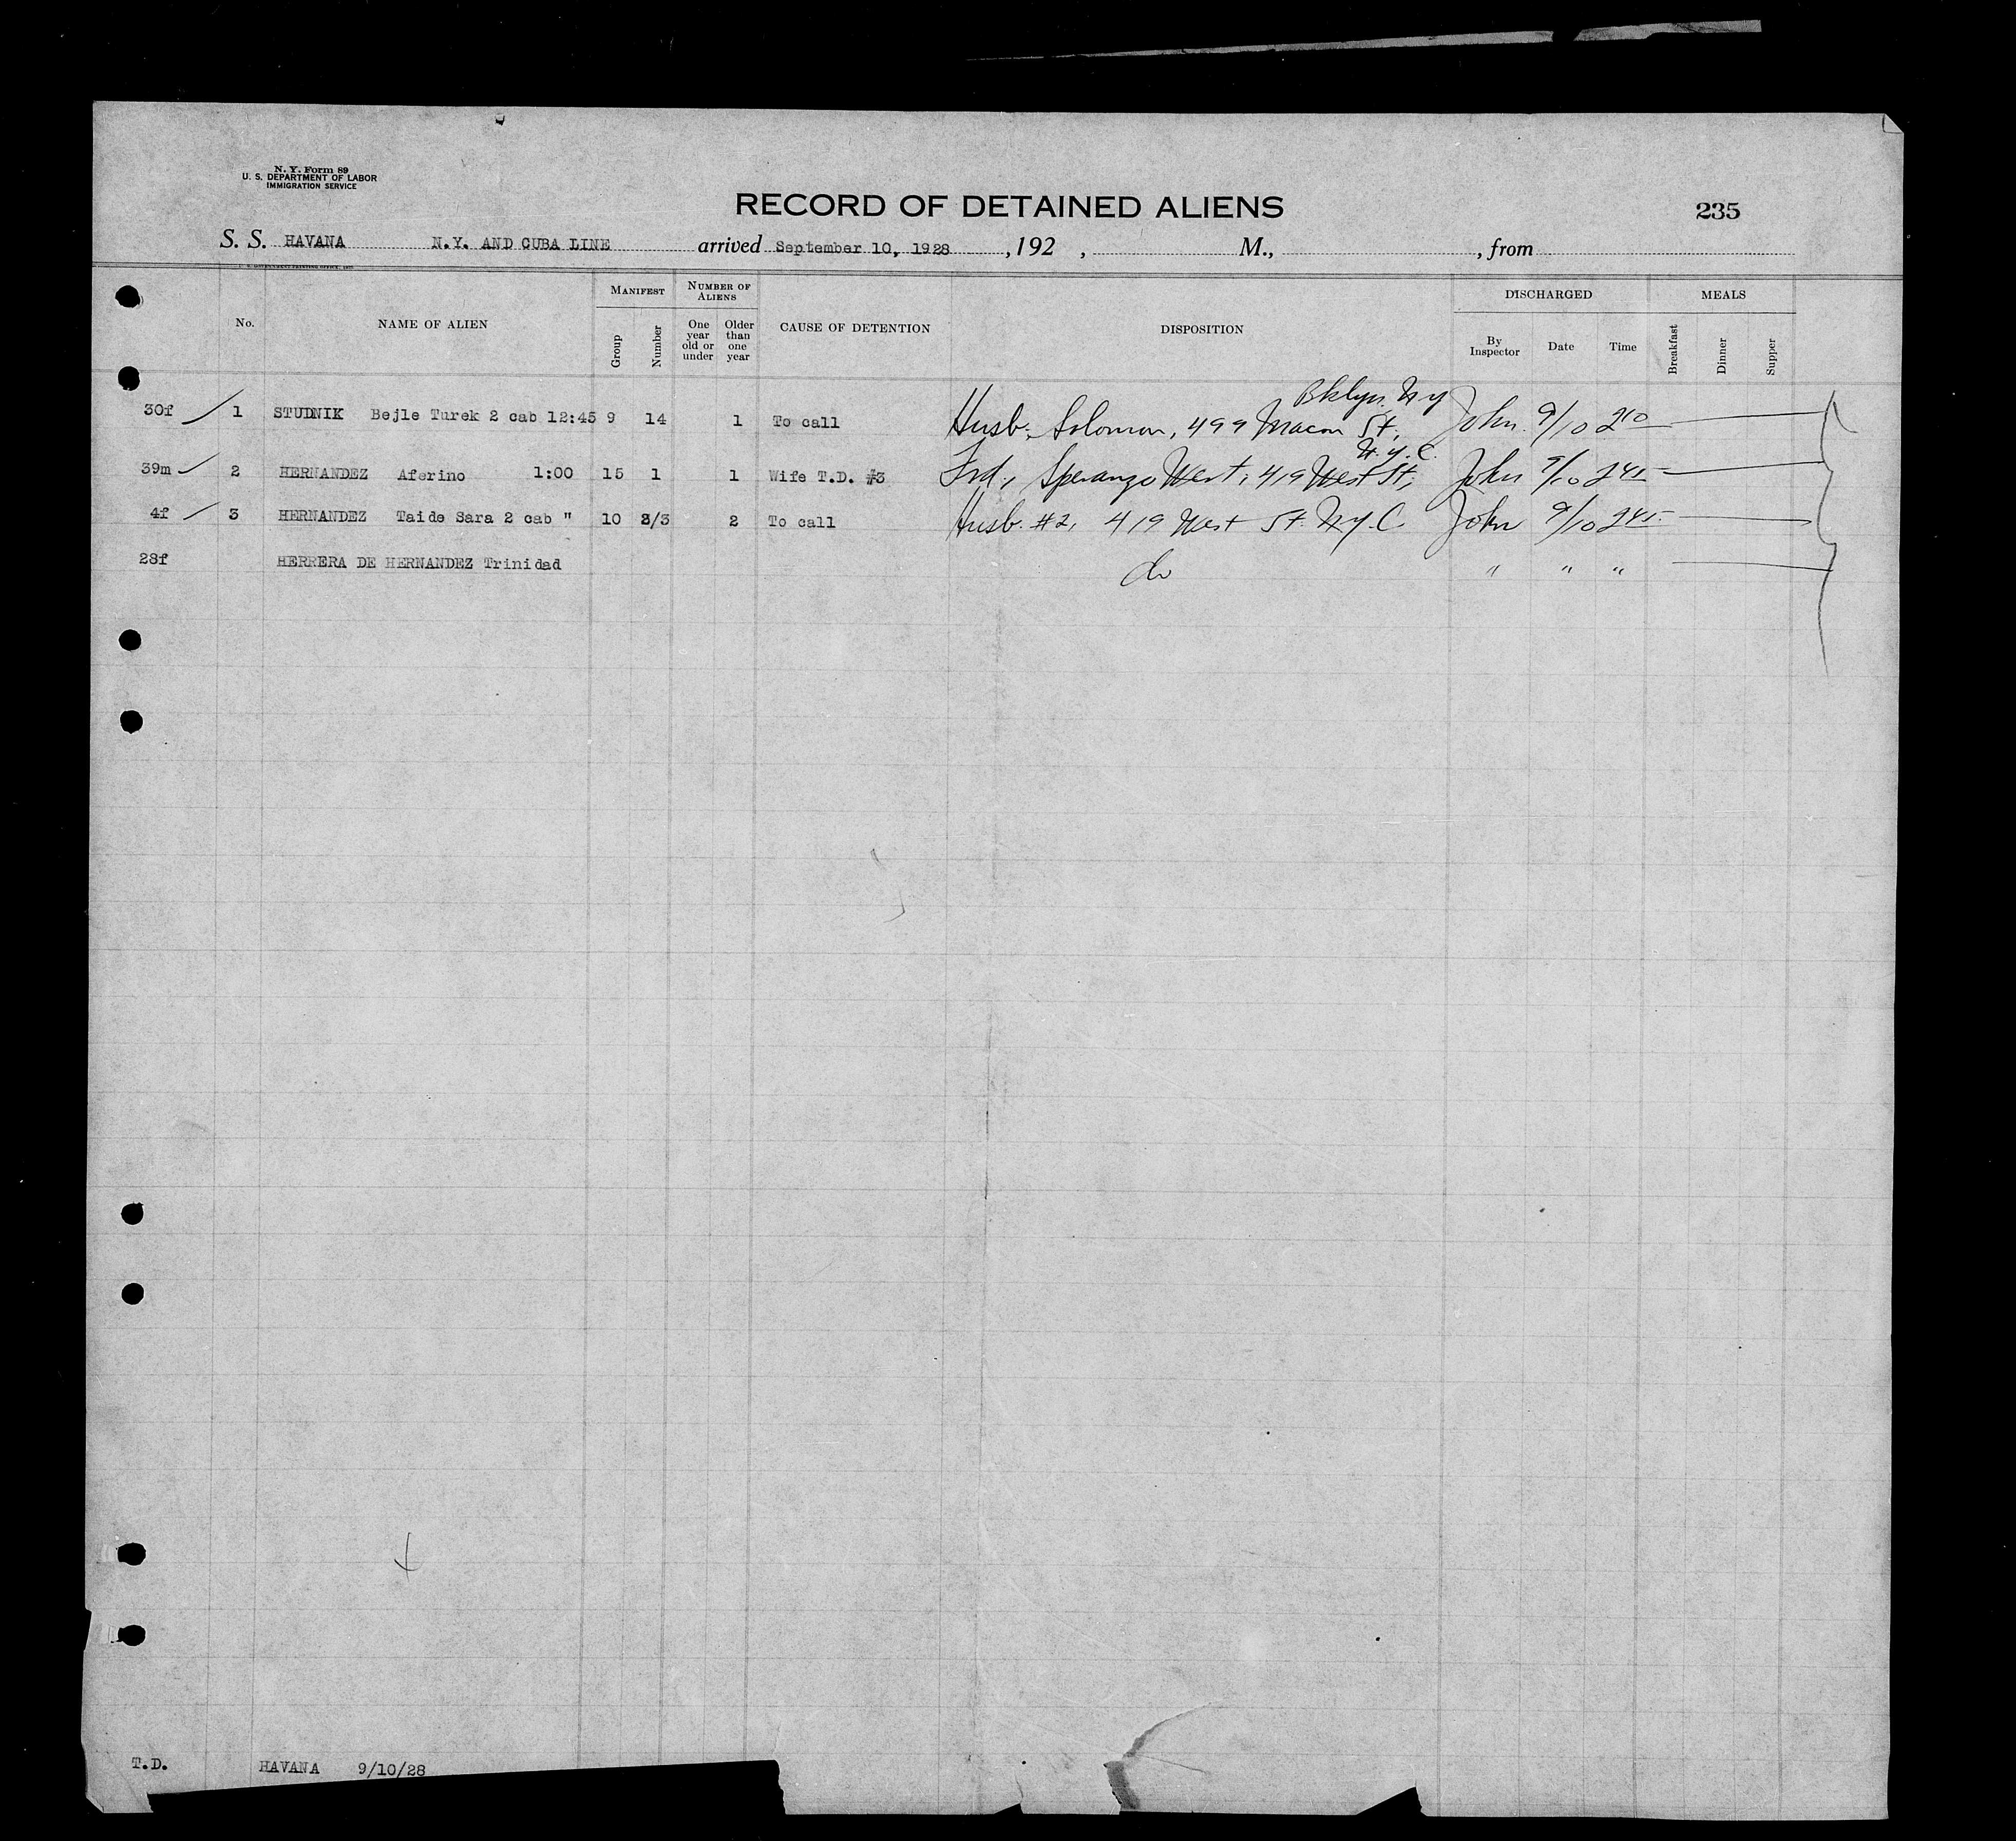 N. Y. Form 89
U. S. DEPARTMENT OF LABOR
IMMIGRATION SERVICE
RECORD OF DETAINED ALIENS
235
S. S. HAVANA N.Y. AND CUBA LINE arrived September 10, 1928, 192 , M., , from
No. NAME OF ALIEN MANIFEST Group Number NUMBER OF ALIENS One year old or under Older than one year CAUSE OF DETENTION DISPOSITION DISCHARGED By Inspector Date Time MEALS Breakfast Dinner Supper
Bklyn. N.Y
30f 1 STUDNIK Bejle Turek 2 cab 12:45 9 14 1 To call Husb. Solomon, 499 Macon St, John 9/10 210
N.Y.C.
39m 2 HERNANDEZ Aferino 1:00 15 1 1 Wife T.D. #3 Frd., Speranzo West, 419 West St, John 9/10 245
4f 3 HERNANDEZ Taide Sara 2 cab " 10 2/3 2 To call Husb. #2, 419 West St. N.Y.C. John 9/10 245
28f HERRERA DE HERNANDEZ Trinidad do " " "
T.D. HAVANA 9/10/28